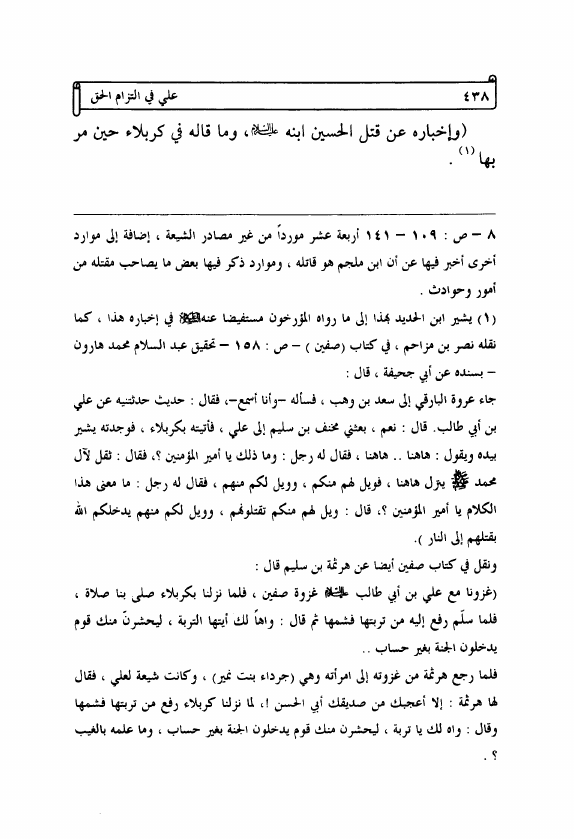 ٤٣٨ علي في التزام الحق
(وإخباره عن قتل الحسين ابنه عليه السلام، وما قاله في كربلاء حين مر
بها (١) .
٨ – ص : ١٠٩ – ١٤١ أربعة عشر مورداً من غير مصادر الشيعة ، إضافة إلى موارد
أخرى أخبر فيها عن أن ابن ملجم هو قاتله ، وموارد ذكر فيها بعض ما يصاحب مقتله من
أمور وحوادث .
(١) يشير ابن الحديد بهذا إلى ما رواه المؤرخون مستفيضا عنه في إخباره هذا ، كما
نقله نصر بن مزاحم ، في كتاب (صفين ) – ص : ١٥٨ – تحقيق عبد السلام محمد هارون
– بسنده عن أبي جحيفة ، قال :
جاء عروة البارقي إلى سعد بن وهب ، فسأله –وأنا أسمع–، فقال : حديث حدثتنيه عن علي
بن أبي طالب. قال : نعم ، بعثني مخنف بن سليم إلى علي ، فأتيته بكربلاء ، فوجدته يشير
بيده ويقول : هاهنا .. هاهنا ، فقال له رجل : وما ذلك يا أمير المؤمنين ؟، فقال : ثقل لآل
محمد ﷺ ينزل هاهنا ، فويل لهم منكم ، وويل لكم منهم ، فقال له رجل : ما معنى هذا
الكلام يا أمير المؤمنين ؟، قال : ويل لهم منكم تقتلونهم ، وويل لكم منهم يدخلكم الله
بقتلهم إلى النار ).
ونقل في كتاب صفين أيضا عن هرثمة بن سليم قال :
(غزونا مع علي بن أبي طالب عليه السلام غزوة صفين ، فلما نزلنا بكربلاء صلى بنا صلاة ،
فلما سلّم رفع إليه من تربتها فشمها ثم قال : واهاً لك أيتها التربة ، ليحشرنّ منك قوم
يدخلون الجنة بغير حساب ..
فلما رجع هرثمة من غزوته إلى امرأته وهي (جرداء بنت نمير) ، وكانت شيعة لعلي ، فقال
لها هرثمة : إلا أعجبك من صديقك أبي الحسن !، لما نزلنا كربلاء رفع من تربتها فشمها
وقال : واه لك يا تربة ، ليحشرن منك قوم يدخلون الجنة بغير حساب ، وما علمه بالغيب
؟ .